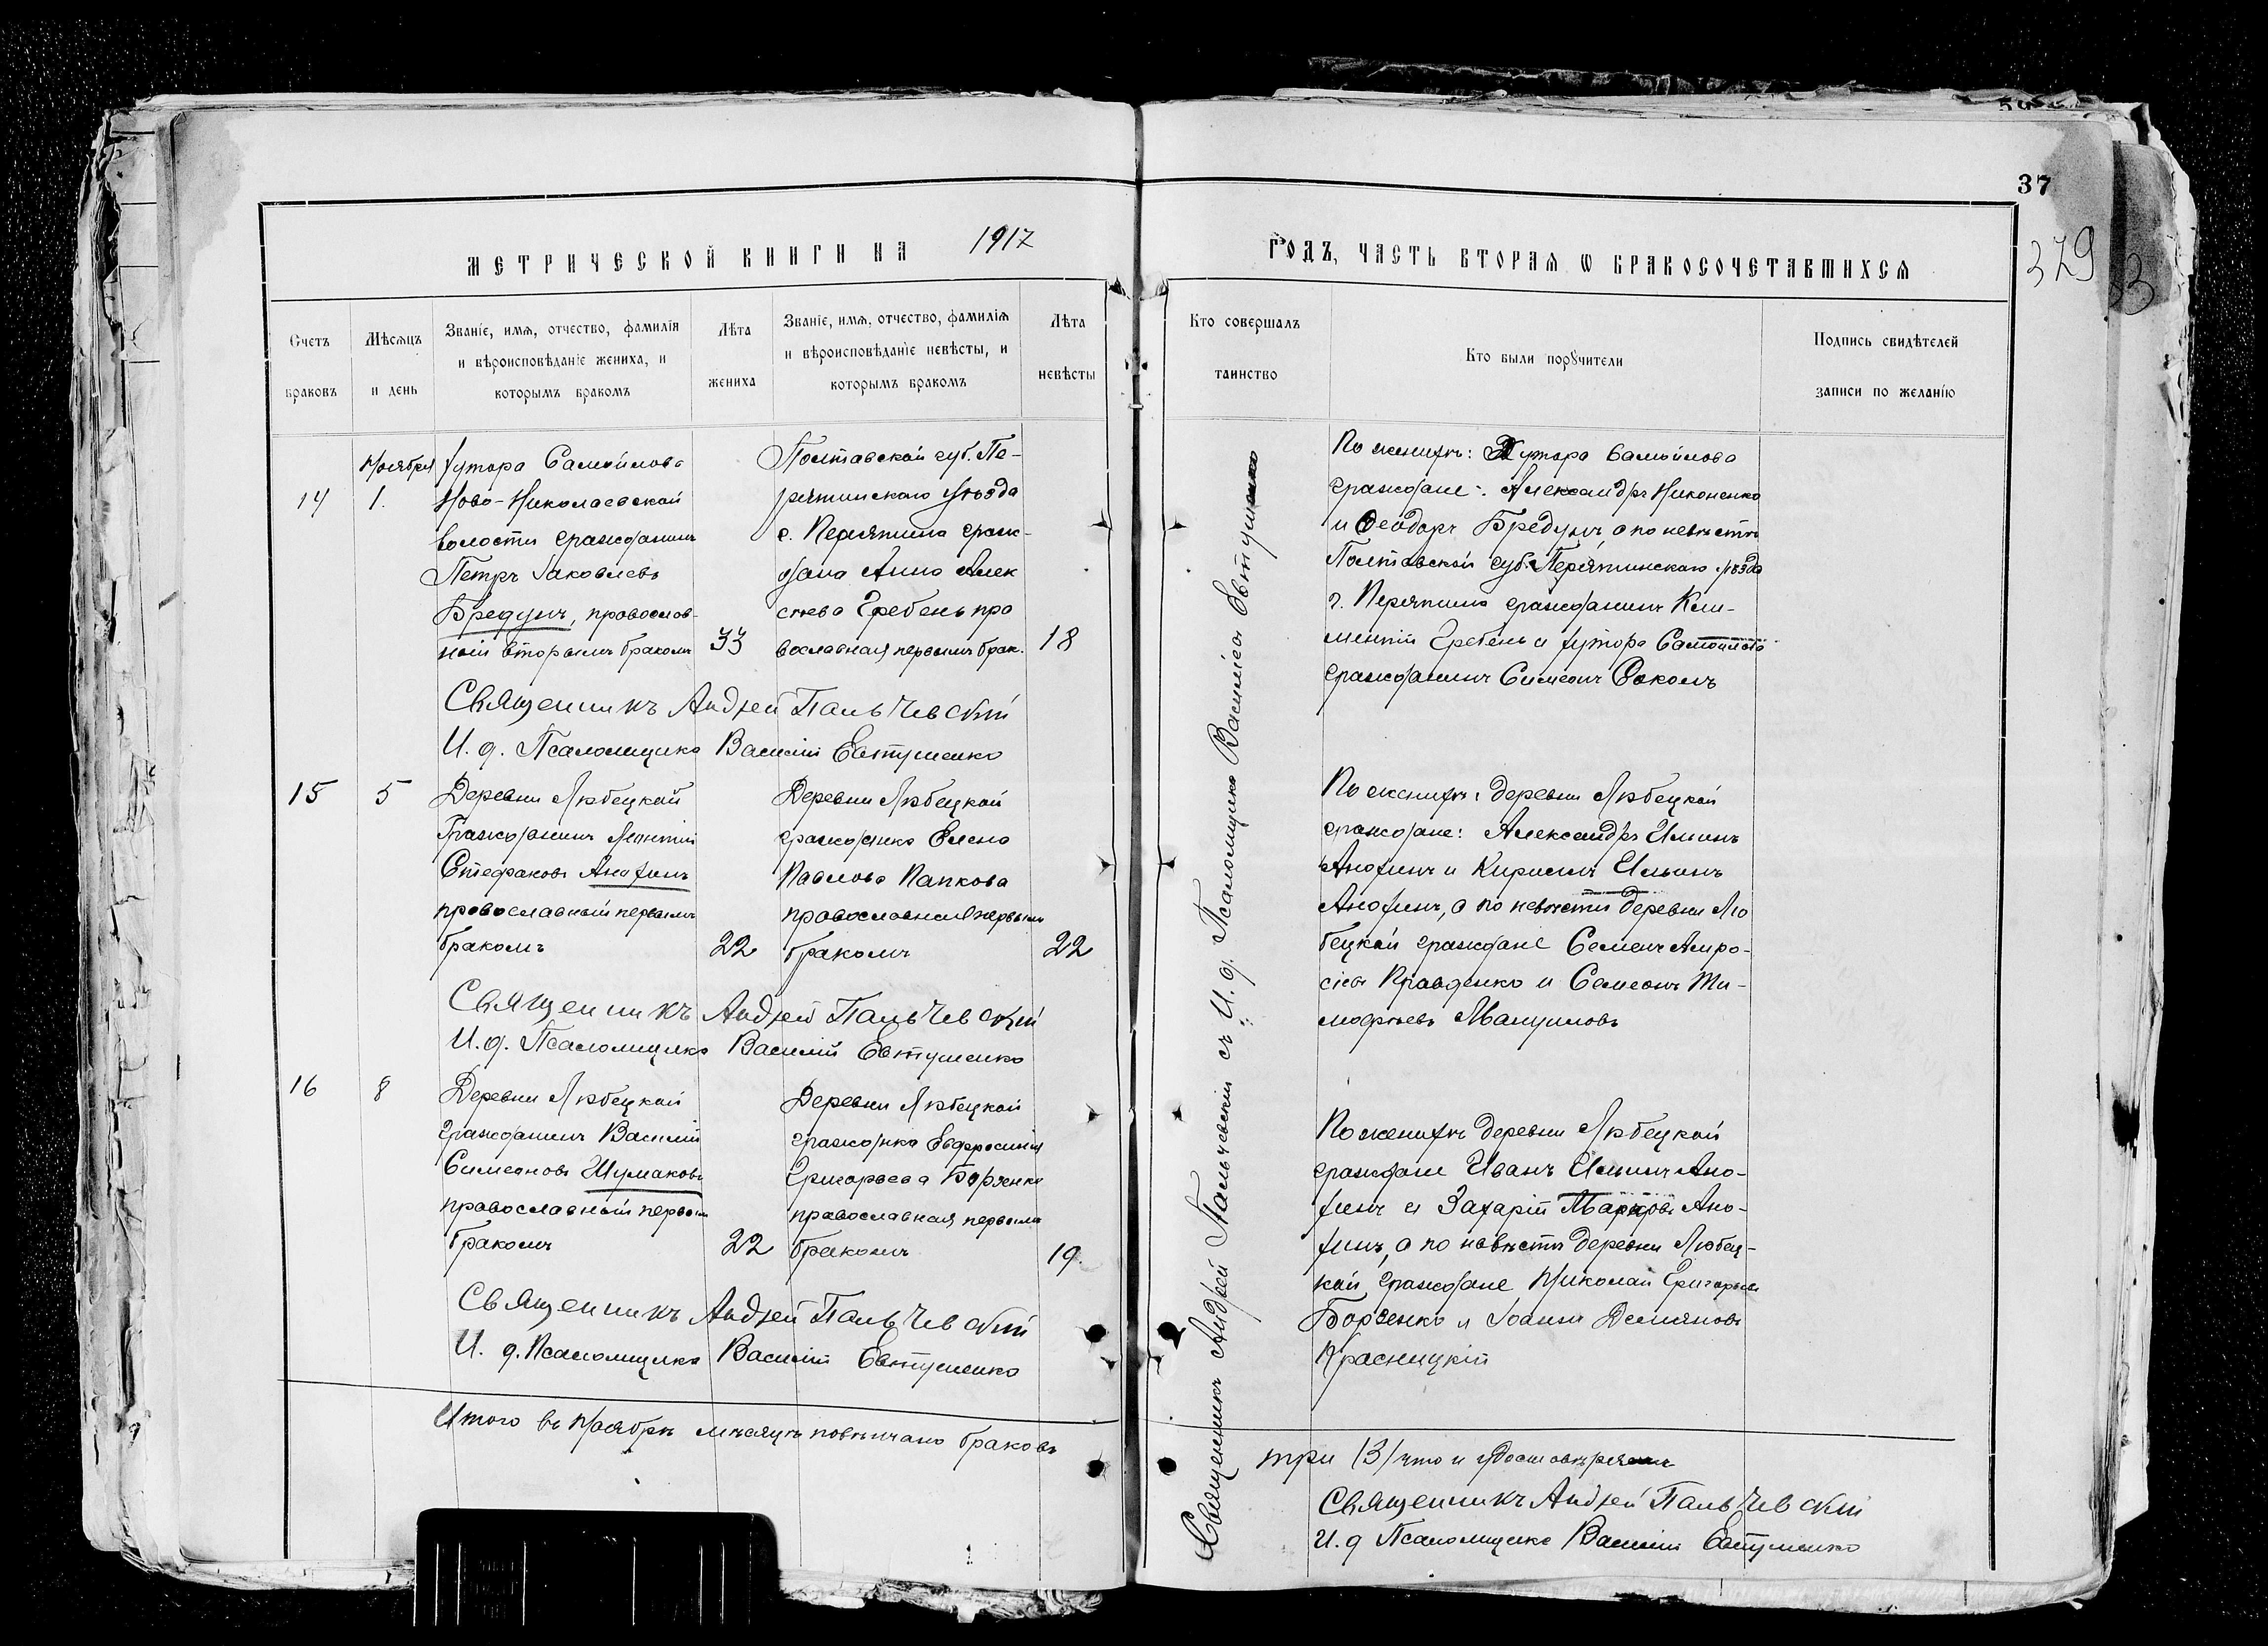 37
379
МЕТРИЧЕСКОЙ КНИГИ НА 1917
ГОДЪ, ЧАСТЬ ВТОРАЯ Ѡ БРАКОСОЧЕТАВШИХСЯ
Счетъ браковъ
Мѣсяцъ и день
Званіе, имя, отчество, фамилія
и вѣроисповѣданіе жениха, и
которымъ бракомъ
Лѣта жениха
Званіе, имя, отчество, фамилія
и вѣроисповѣданіе невѣсты, и
которымъ бракомъ
Лѣта невѣсты
Кто совершалъ
таинство
Кто были порꙋчители
Подпись свидѣтелей
записи по желанію
14
Ноября
1.
Хутора Самойлова
Ново-Николаевской
волости гражданинъ
Петръ Іаковлевъ
Бредунъ, православ-
ный вторымъ бракомъ
33
Полтавской губ. Пе-
рятинскаго уѣзда
г. Перятина граж-
дана Анна Алек
сѣева Гребень пра
вославная первымъ брак.
18
Священникъ Андрей Пальчевскій
И. д. Псаломщика Василій Евтушенко
15
5
Деревни Любецкой
Гражданинъ Леонтій
Стефановъ Анохинъ
православный первымъ
бракомъ
22
Деревни Любецкой
гражданка Елена
Павлова Папкова
православная первымъ
бракомъ
22
Священникъ Андрей Пальчевскій
И. д. Псаломщика Василій Евтушенко
16
8
Деревни Любецкой
гражданинъ Василій
Симеоновъ Шумаковъ
православный первым
бракомъ
22
Деревни Любецкой
гражданка Евфросинія
Григорьева Борзенко
православная первымъ
бракомъ
19.
Священникъ Андрей Пальчевскій
И. д. Псаломщика Василій Евтушенко
Итого въ Ноябрѣ мѣсяцѣ повѣнчано браковъ
Священникъ Андрей Пальчевскій съ И. д. Псаломщика Василіем Евтушенко
По женихѣ: Хутора Самойлова
граждане: Александръ Никоненко
и Ѳеодоръ Бредунъ, а по невѣстѣ
Полтавской губ. Перятинскаго уѣзда
г. Перятина гражданинъ Кли-
ментій Гребень и хутора Самойлова
гражданинъ Симеонъ Соколъ
По женихѣ: деревни Любецкой
граждане: Александръ Ильинъ
Анохинъ и Кириллъ Ильинъ
Анохинъ, а по невѣстѣ деревни Лю
бецкой граждане Семенъ Амро-
сіевъ Правденко и Семеонъ Ти-
мофѣевъ Мануиловъ
По женихѣ деревни Любецкой
граждане Иванъ Ильинъ Ано-
хинъ и Захарій Марковъ Ано-
хинъ, а по невѣстѣ деревни Любец-
кой граждане Николай Григорьевъ
Борзенко и Іоаннъ Демьяновъ
Красницкій
три (3) что и удостовѣряемъ
Священникъ Андрей Пальчевскій
И. д Псаломщика Василій Евтушенко